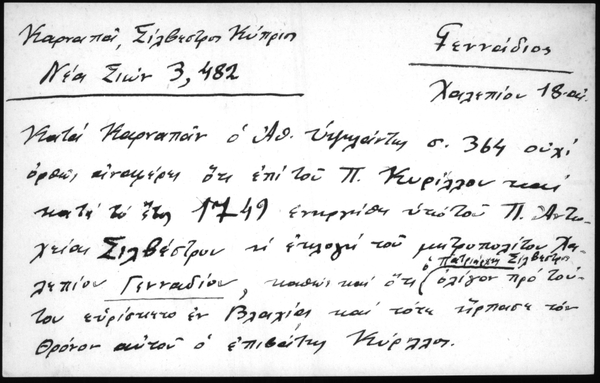 Καρναπᾶ, Σίλβεστρος Κύπριος
Γεννάδιος
Νέα Σιὼν 3, 482
Χαλεπίου 18-αἰ.
Κατὰ Καρναπᾶν ὁ Ἀθ. Ὑψηλάντης σ. 364 οὐχὶ
ὀρθῶς ἀναφέρει ὅτι ἐπὶ τοῦ Π. Κυρίλλου καὶ
κατὰ τὸ ἔτος 1749 ἐνηργήθη ὑπὸ τοῦ Π. Ἀντιο-
χείας Σιλβέστρου ἡ ἐκλογὴ τοῦ μητροπολίτου Χα-
ὁ Πατριάρχης Σίλβεστρος
λεπίου Γενναδίου, καθὼς καὶ ὅτι ὀλίγον πρὸ τού-
του εὑρίσκετο ἐν Βλαχίᾳ καὶ τότε ἥρπασε τὸν
Θρόνον αὐτοῦ ὁ ἐπιβάτης Κύριλλος.